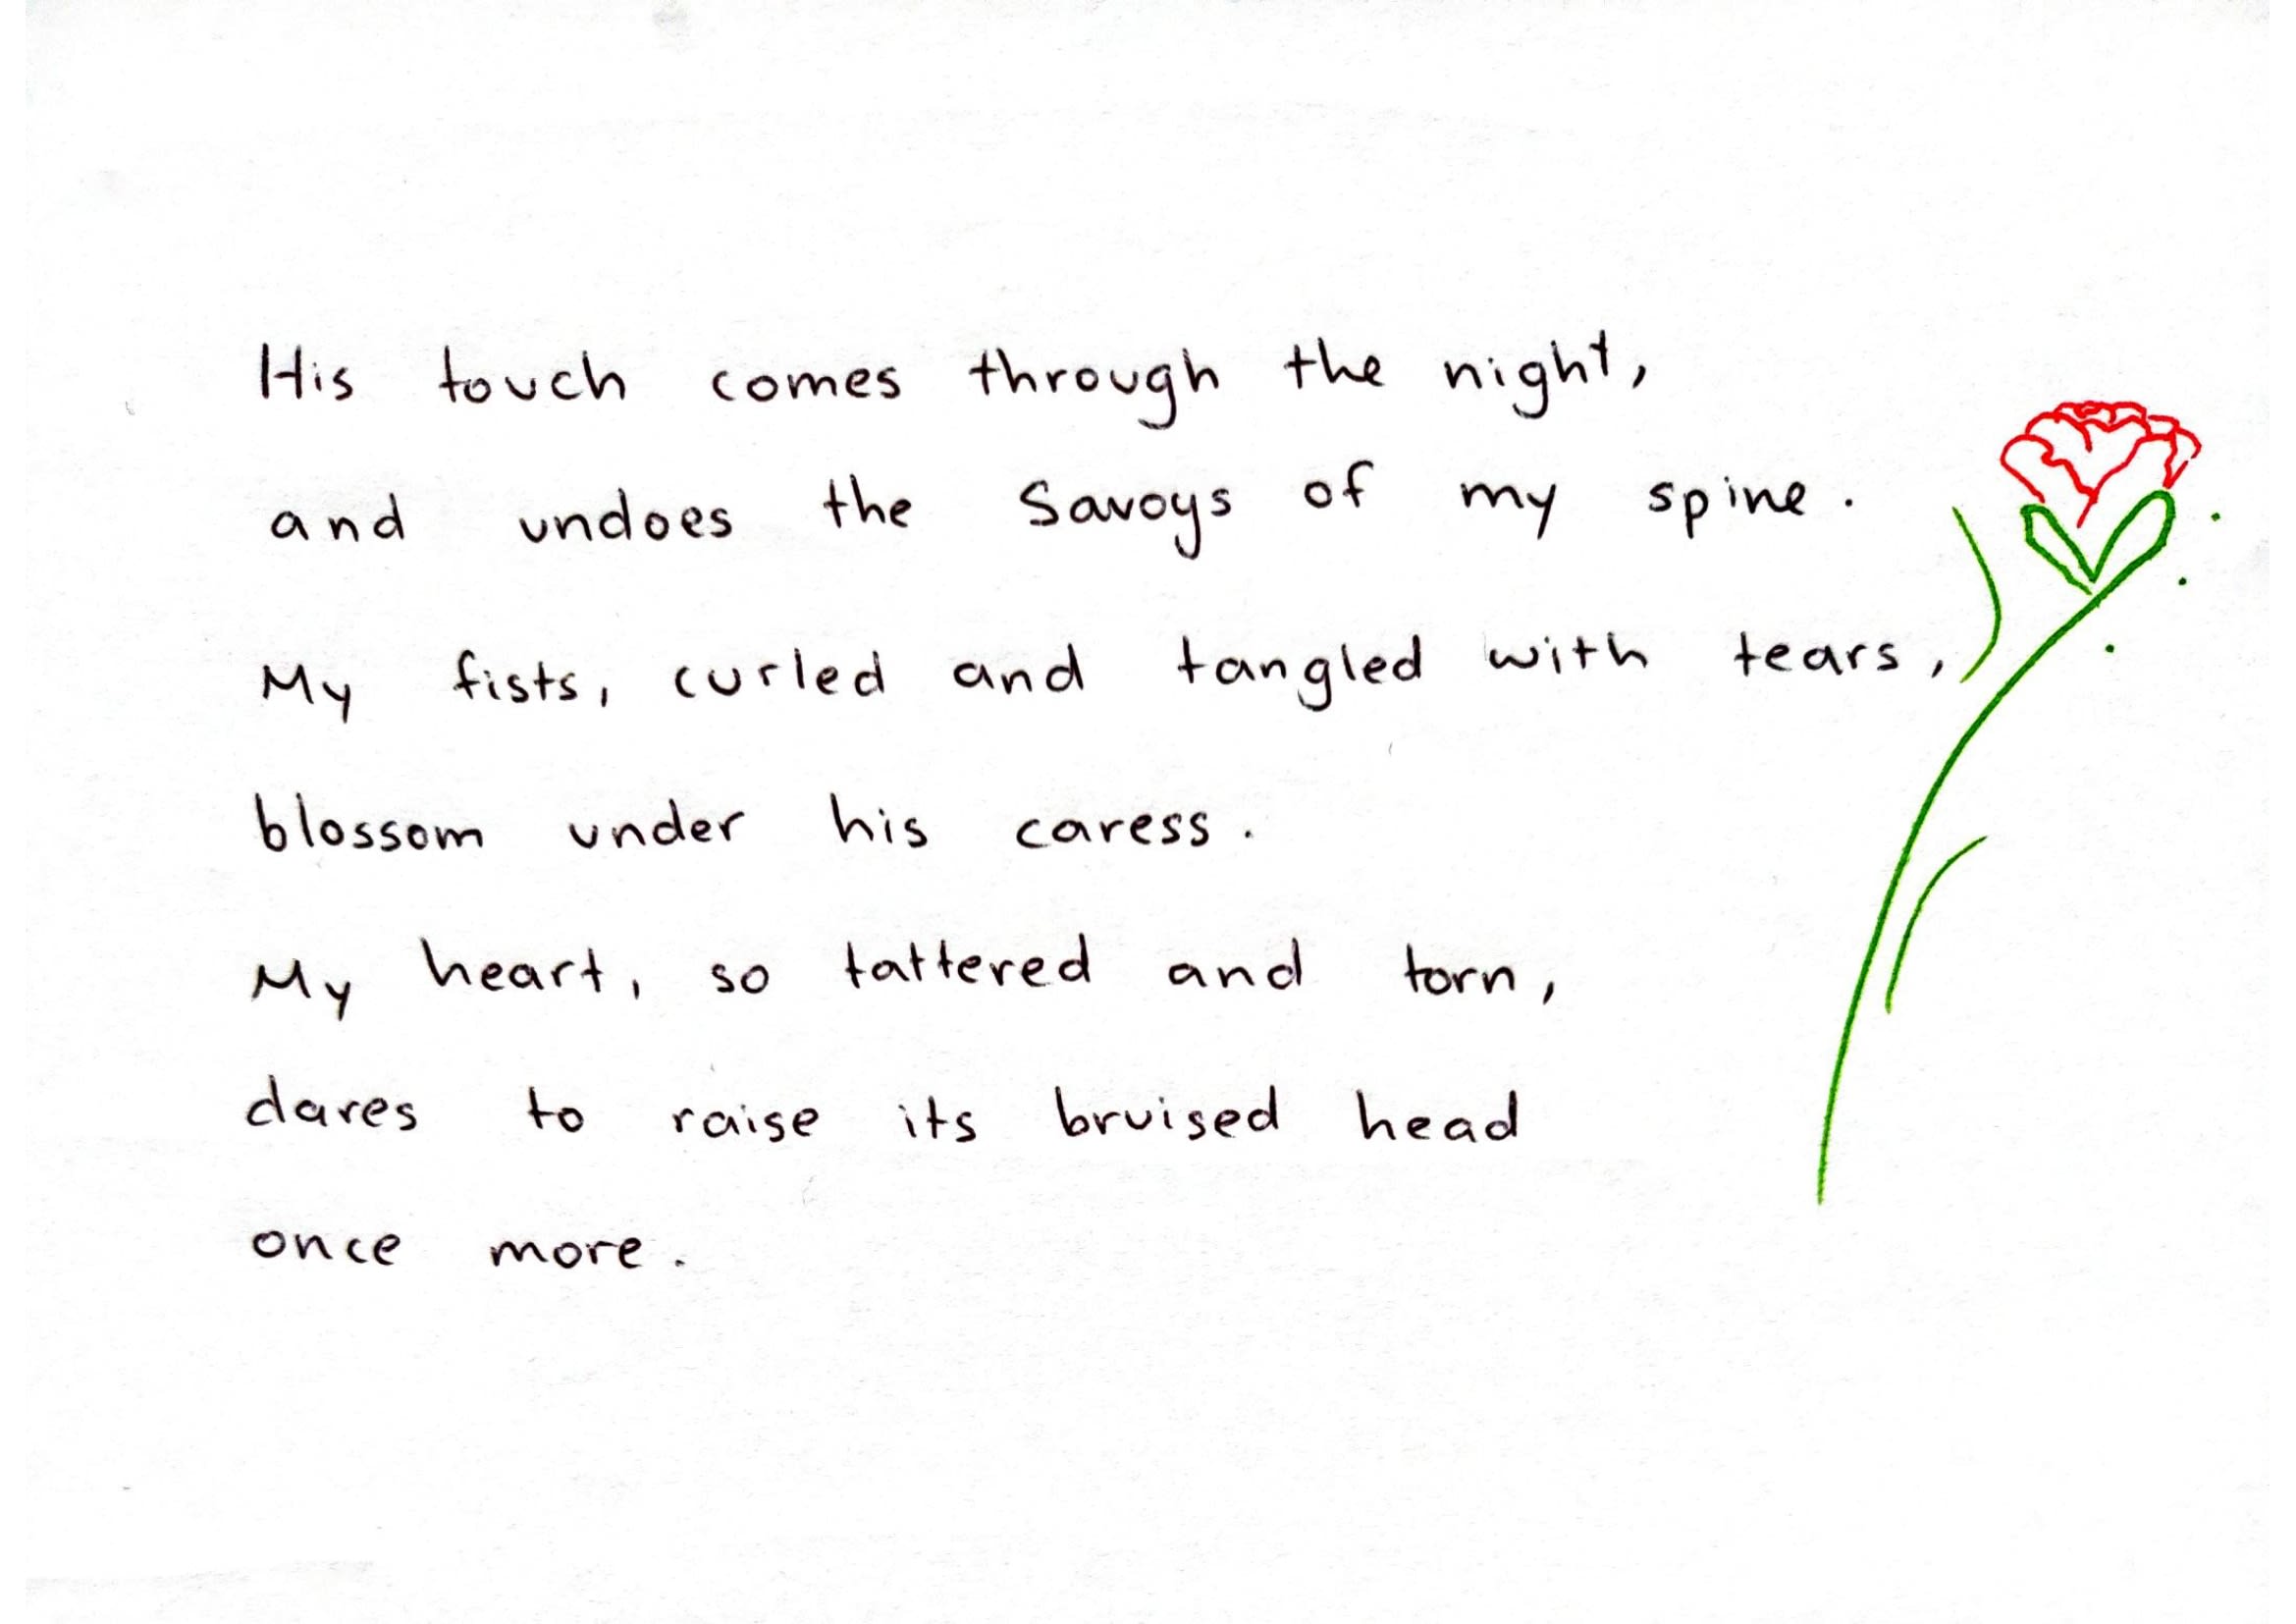 His touch comes through the night,
and undoes the Savoys of my spine.
My fists, curled and tangled with tears,
blossom under his caress.
My heart, so tattered and torn,
dares to raise its bruised head
once more.